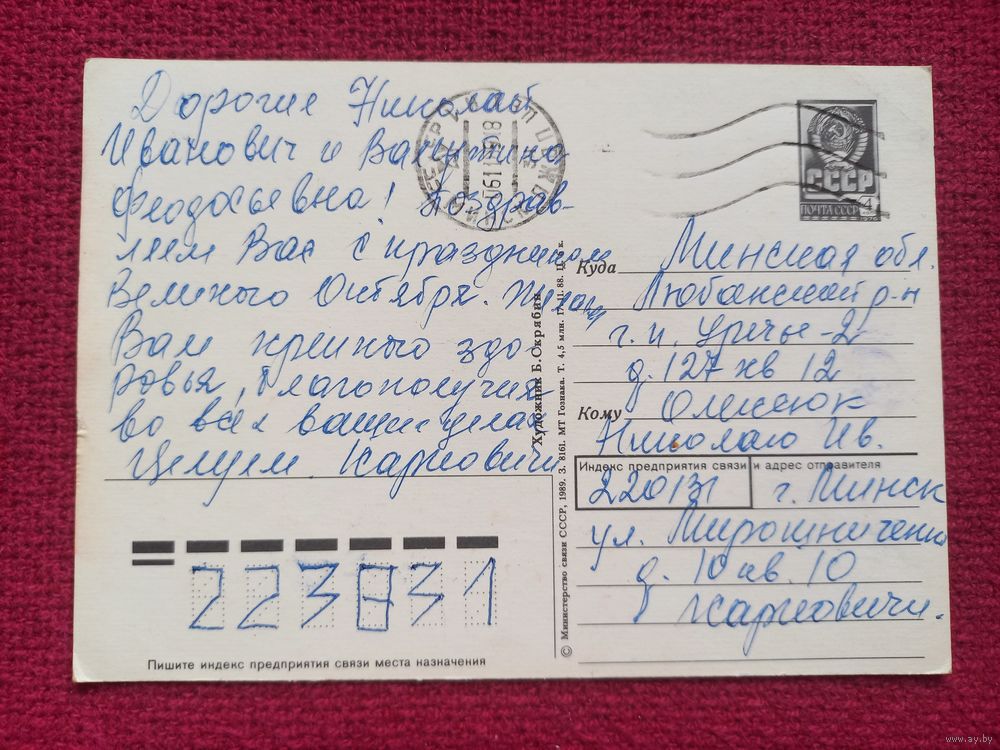 Дорогие Николай
Иванович и Валентина
Феодосьевна! Поздрав-
ляем Вас с праздником
Великого Октября. Желаем
Вам крепкого здо-
ровья, благополучия
во всех ваших делах
Целуем Карповичи
СССР
ПОЧТА СССР 4
1976
Куда Минская обл.
Любанский р-н
г.п. Уречье-2
д. 127 кв 12
Кому Олесюк
Николаю Ив.
Индекс предприятия связи и адрес отправителя
220131 г. Минск
ул. Мирошниченко
д. 10 кв. 10
Карповичи.
Художник Б. Скрябин
© Министерство связи СССР, 1989. З. 8161. МТ Гознака. Т. 4,5 млн. 17.11.88. Ц. 5 к.
223831
Пишите индекс предприятия связи места назначения
www.ay.by